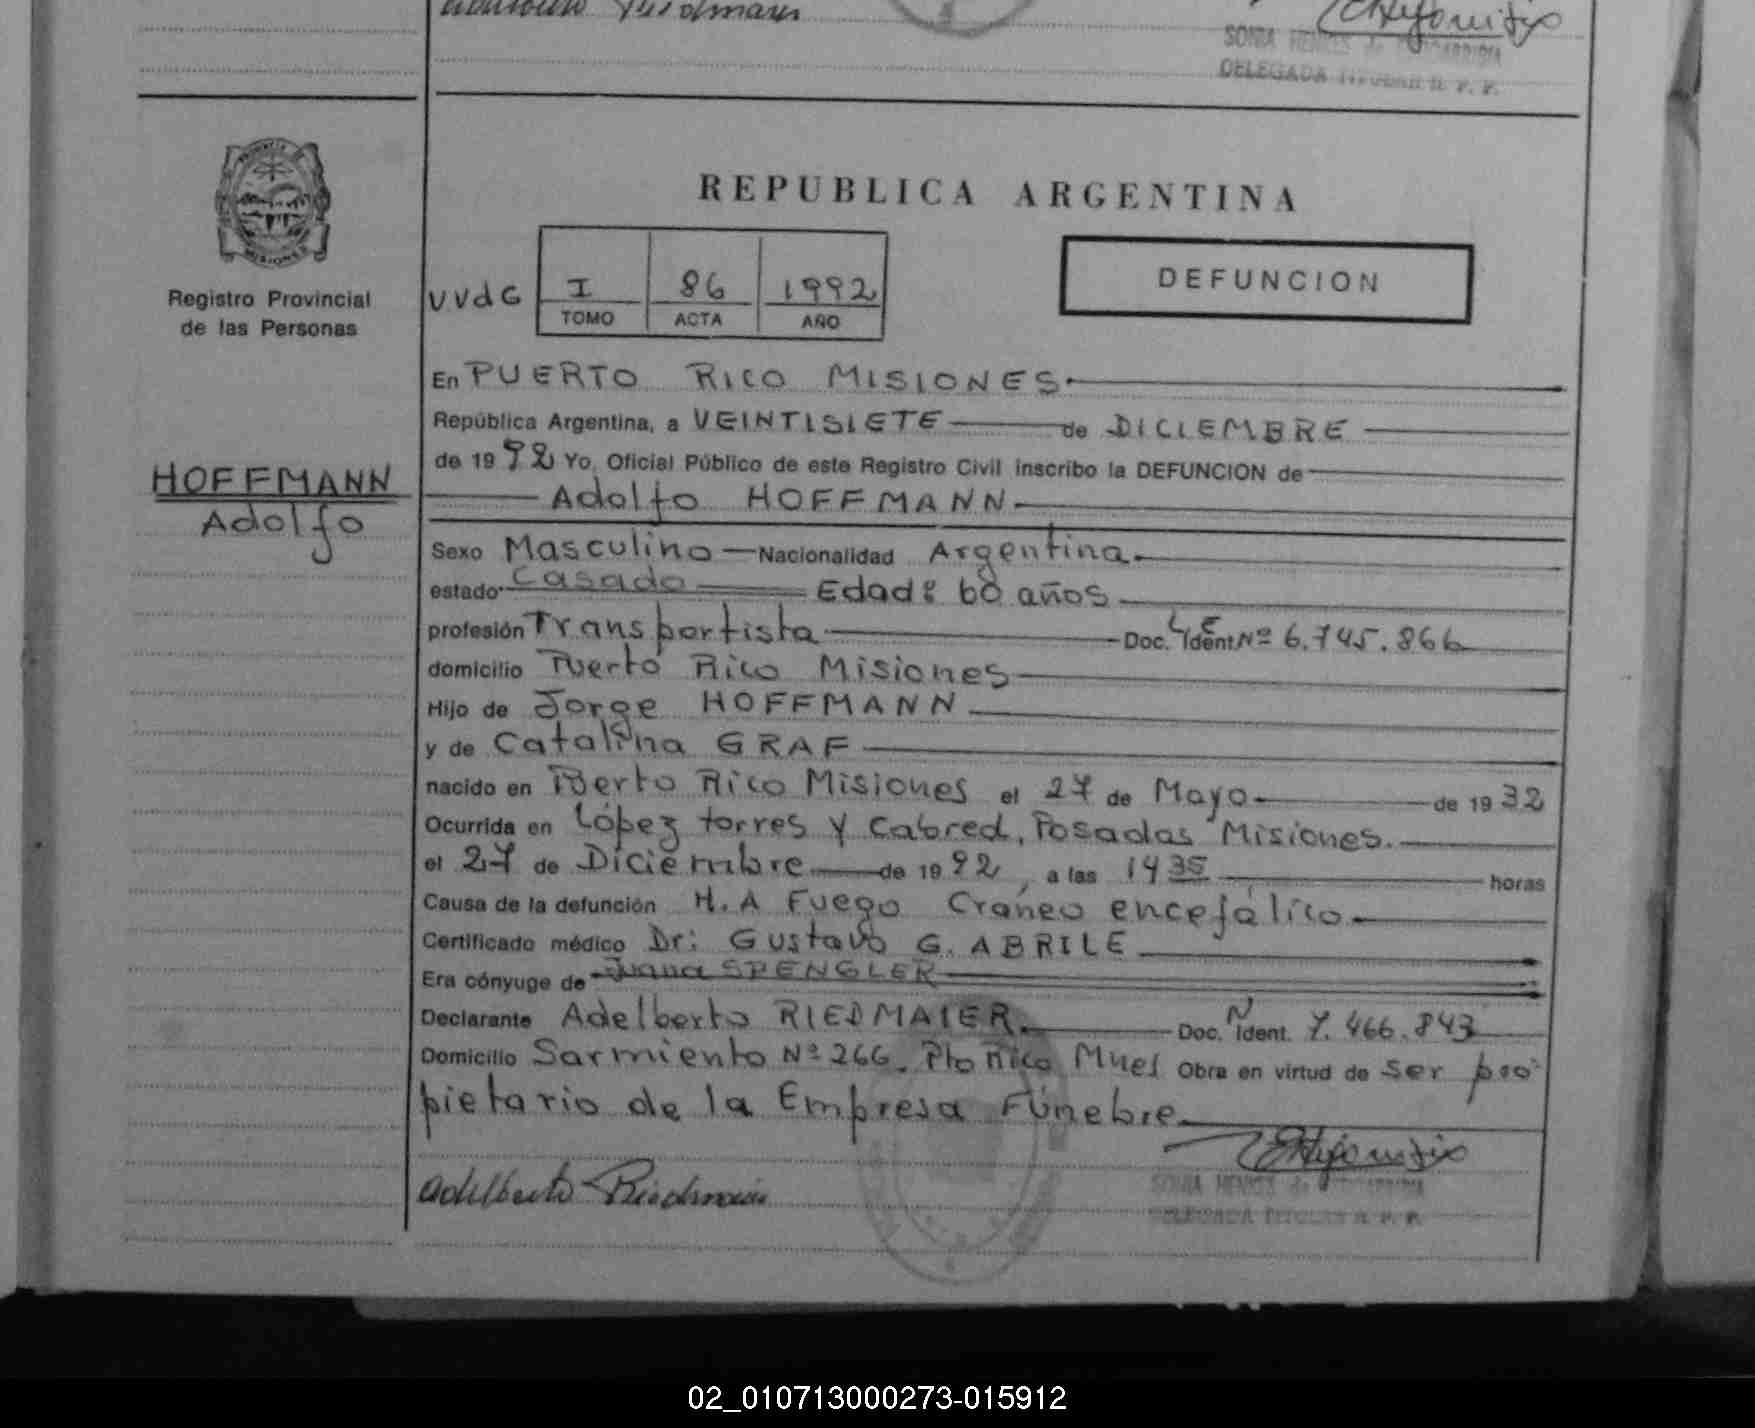 Adelberto Riedmaier
SONIA HENKES de
DELEGADA TITULAR R. P. P.
PROVINCIA DE
MISIONES
REPUBLICA ARGENTINA
Registro Provincial
de las Personas
VVdG
I 86 1992
TOMO ACTA AÑO
DEFUNCION
HOFFMANN
Adolfo
En PUERTO RICO MISIONES.
República Argentina, a VEINTISIETE de DICIEMBRE
de 19 92 Yo, Oficial Público de este Registro Civil inscribo la DEFUNCION de
Adolfo HOFFMANN
Sexo Masculino Nacionalidad Argentina.
estado Casado Edad: 60 años
profesión Transportista Doc. L E Ident. Nº 6.745.866
domicilio Puerto Rico Misiones
Hijo de Jorge HOFFMANN
y de Catalina GRAF
nacido en Puerto Rico Misiones el 27 de Mayo de 19 32
Ocurrida en López torres y Cabred, Posadas Misiones.
el 27 de Diciembre de 19 92, a las 14 35 horas
Causa de la defunción H. A Fuego Craneo encefálico
Certificado médico Dr: Gustavo G. ABRILE
Era cónyuge de Juana SPENGLER
Declarante Adelberto RIEDMAIER. Doc. N Ident. 7.466.843
Domicilio Sarmiento Nº 266. Pto Rico Mnes Obra en virtud de ser pro
pietario de la Empresa Fúnebre
Adelberto Riedmaier
SONIA HENKES de
DELEGADA TITULAR R. P. P.
02_010713000273-015912